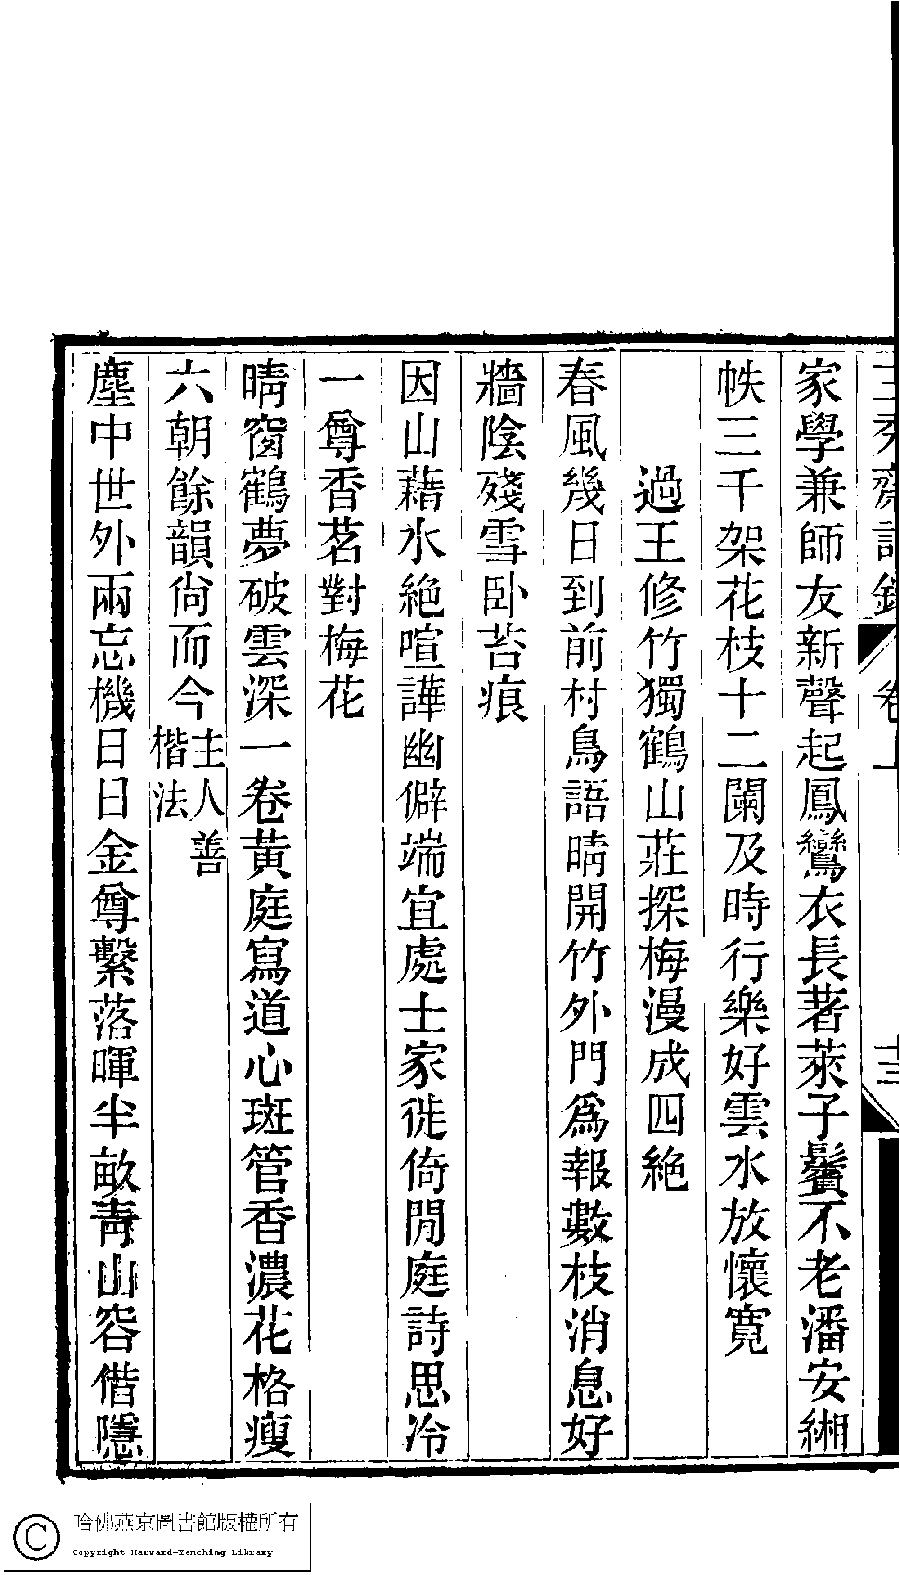 家學兼師友新聲起鳳鸞衣長著萊子鬢不老潘安緗
帙三千架花枝十二闌及時行樂好雲水放懷寬
過王修竹獨鶴山莊探梅漫成四絶
春風幾日到前村鳥語晴開竹外門爲報數枝消息好
牆陰殘雪卧苔痕
因山藉水絶喧譁幽僻端宜處士家徙倚閒庭詩思冷
一尊香茗對梅花
晴窗鶴夢破雲深一卷黃庭寫道心斑管香濃花格瘦
六朝餘韻尙而今主人善楷法
塵中世外兩忘機日日金尊繫落暉半畝靑山容偕隱
哈佛燕京圖書館版權所有
Copyright Harvard-Yenching Library